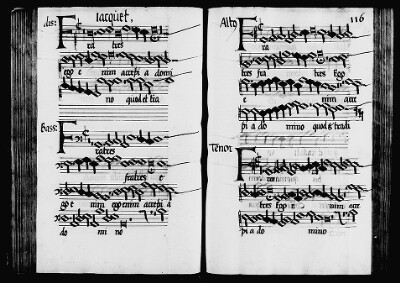 Iacquet,
dis:
Fra tres
ego e nim accepi a domi
no quod et tra
Bass:
Fratres
fratres e
go e nim ego enim accepi a
do mi no
116
Alto
Fra
tres fra tres Ego
e nim acce
pi a do mino quod et tradi
Tenor
tres Ego e nim acce
pi a do mino